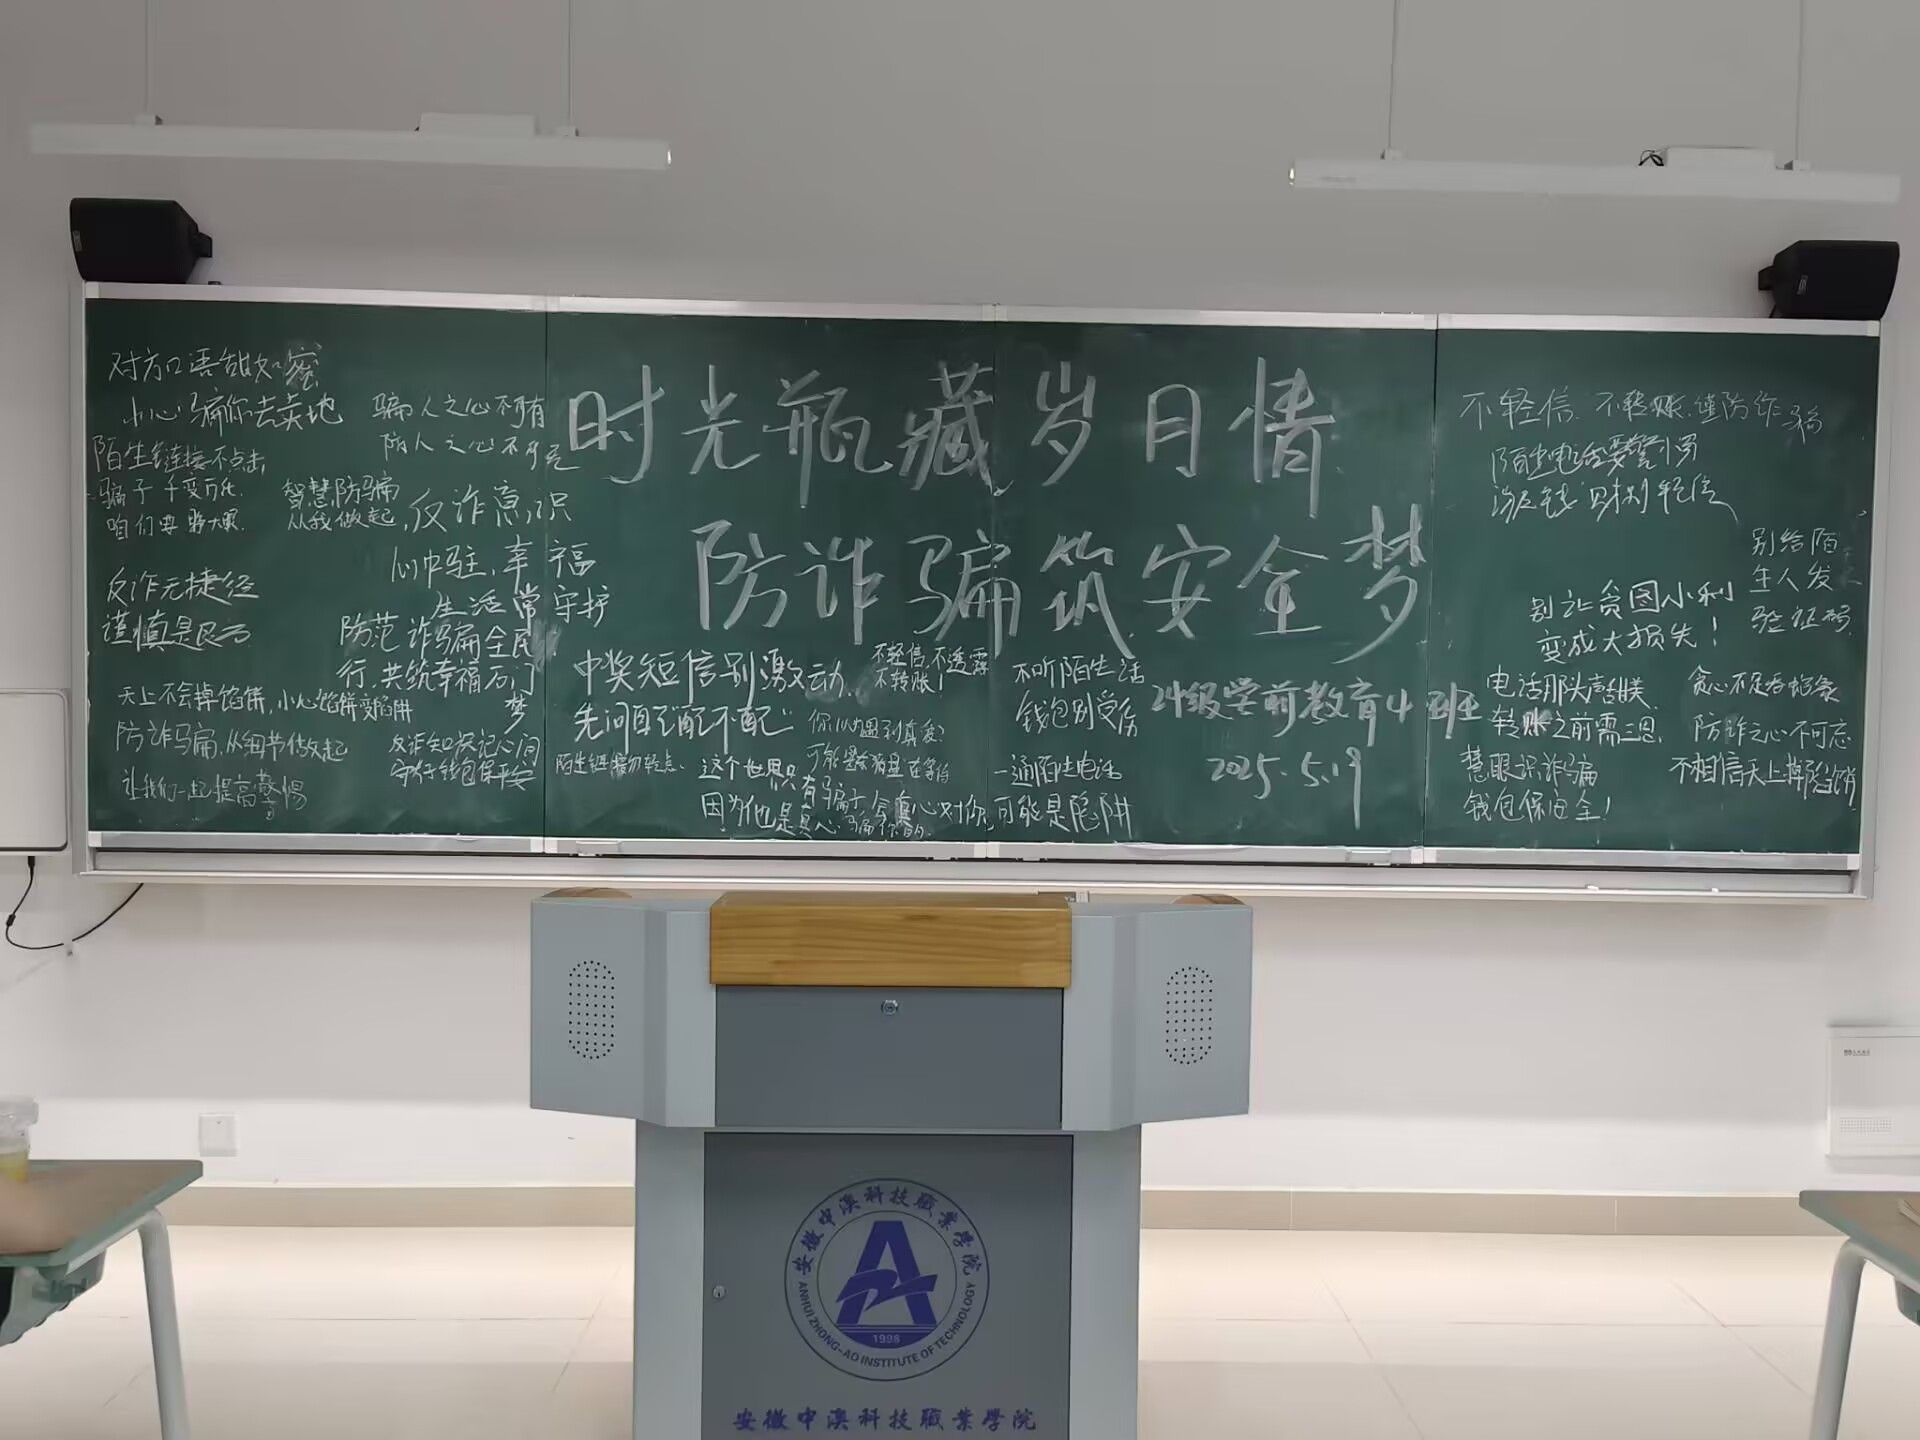 时光瓶藏岁月情
防诈骗筑安全梦
对方口语甜如蜜
小心骗你去卖地
骗人之心不可有
防人之心不可无
陌生链接不点击,
骗子千变万化.
咱们要 大眼.
智慧防骗
从我做起,
反诈意识
心中驻,幸福
生活常守护
反诈无捷径
谨慎是良方
防范诈骗全民
行,共筑幸福石门
梦
天上不会掉馅饼,小心馅饼变陷阱
防诈骗,从细节做起
让我们一起提高警惕
反诈知识记心间
守好钱包保平安
中奖短信别激动,
先问自己"配不配"
不轻信,不透露
不转账!
陌生链接勿轻点、
你以为遇到真爱?
可能是 在等你
这个世界只有骗子会真心对你,
因为他是真心骗你的.
不听陌生话
钱包别受伤
一通陌生电话
可能是陷阱
24级学前教育4班
2025.5.19
不轻信.不转账.谨防诈骗
陌生电话要警惕
涉及钱财别轻信
别给陌
生人发
验证码
别让贪图小利
变成大损失!
电话那头声甜美
转账之前需三思.
贪心不足吞
防诈之心不可忘
不相信天上掉馅饼
慧眼识诈骗
钱包保安全!
安徽中澳科技職業學院
ANHUI ZHONG-AO INSTITUTE OF TECHNOLOGY
1998
安徽中澳科技職業學院